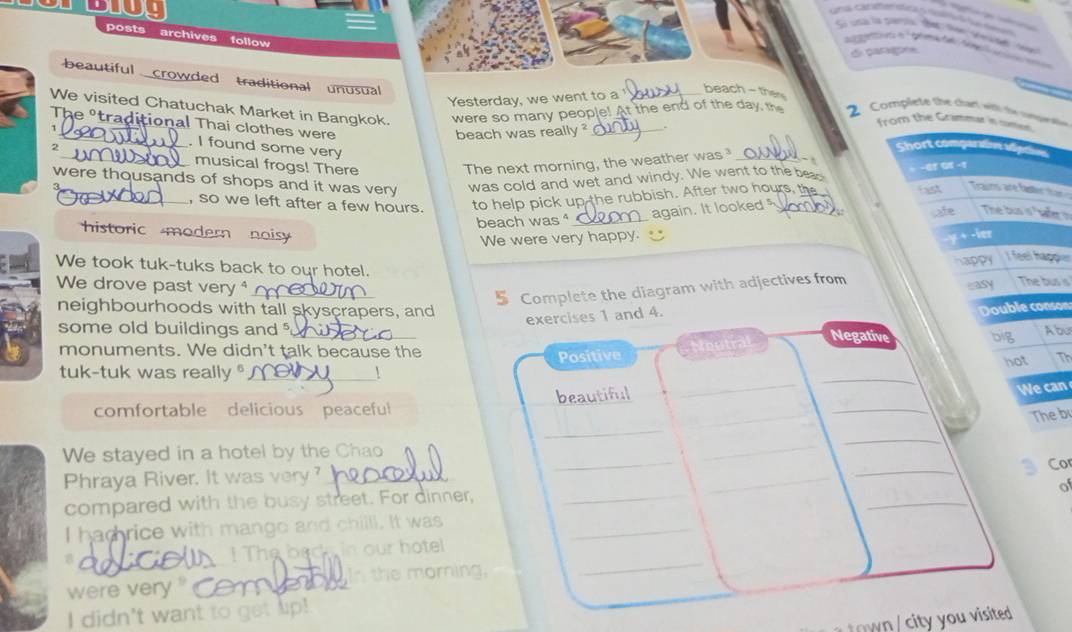 Blog
posts archives follow
beautiful crowded traditional unusual
We visited Chatuchak Market in Bangkok.
The ⁰traditional Thai clothes were
¹ beautiful . I found some very
² unusual musical frogs! There
were thousands of shops and it was very
³ crowded , so we left after a few hours.
historic modern noisy
We took tuk-tuks back to our hotel.
We drove past very ⁴ modern
neighbourhoods with tall skyscrapers, and
some old buildings and ⁵ historic
monuments. We didn't talk because the
tuk-tuk was really ⁶ noisy !
comfortable delicious peaceful
We stayed in a hotel by the Chao
Phraya River. It was very ⁷ peaceful
compared with the busy street. For dinner,
I had rice with mango and chilli. It was
⁸ delicious ! The beds in our hotel
were very ⁹ comfortable in the morning,
I didn't want to get up!
Yesterday, we went to a ¹ busy beach – there
were so many people! At the end of the day, the
beach was really ² dirty .
The next morning, the weather was ³ awful –
was cold and wet and windy. We went to the beach
to help pick up the rubbish. After two hours, the
beach was ⁴ clean again. It looked ⁵
We were very happy.
5 Complete the diagram with adjectives from
exercises 1 and 4.
Positive Neutral Negative
beautiful
town / city you visited
2 Complete the chart with the
from the Grammar in
Short comparative adjectives
+ -er or -r
fast Trains are faster than
safe The bus is safer
-y + -ier
happy I feel happier
easy The bus is
Double conson
big A bus
hot Th
We can
The bu
3 Co
of